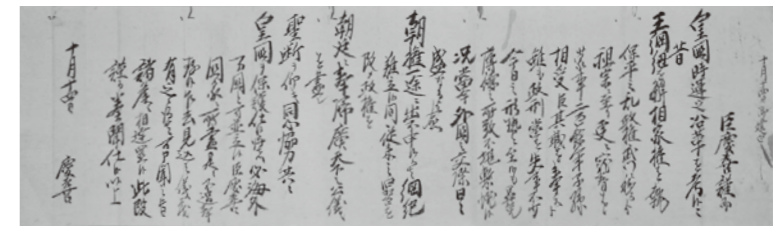 臣慶喜謹而
皇国時運之沿革ヲ考候ニ
昔
王綱紐ヲ解キ相家権ヲ執リ
保平之乱政権武門ニ移テヨリ
祖宗ニ至リ更ニ寵眷ヲ
蒙リ二百余年子孫
相受臣其職ヲ奉スト
雖モ政刑当ヲ失フコト不少
今日之形勢ニ至候モ畢竟
薄徳之所致不堪慚懼候
況ヤ当今外国之交際日ニ
盛ナルニヨリ愈
朝権一途ニ出不申候而者綱紀
難立候間従来之旧習ヲ
改メ政権ヲ
朝廷ニ奉帰広ク天下之公儀
ヲ尽シ
聖断ヲ仰キ同心協力共ニ
皇国ヲ保護仕候得ハ必ス海外
万国ト可並立候臣慶喜
国家ニ所尽是ニ不過ト奉存
候乍去猶見込之儀モ
有之候得ハ可申聞旨
諸侯江相達置候依之此段
謹而奏聞仕候以上
十月十四日 慶喜